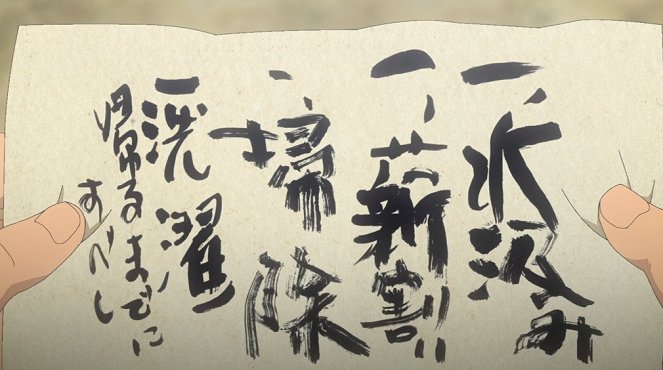 一、水汲み
一、薪割
一、掃除
一、洗濯
帰るまでに
すべし